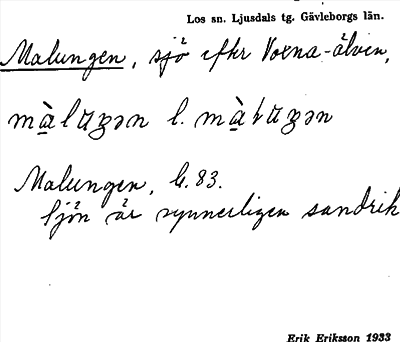 Los sn. Ljusdals tg. Gävleborgs län.
Malungen, sjö efkr Voxna-älven,
màlaꞑən l. màɫaꞑən
Malungen, G. 83.
Sjön är synnerligen sandrik
Erik Eriksson 1933